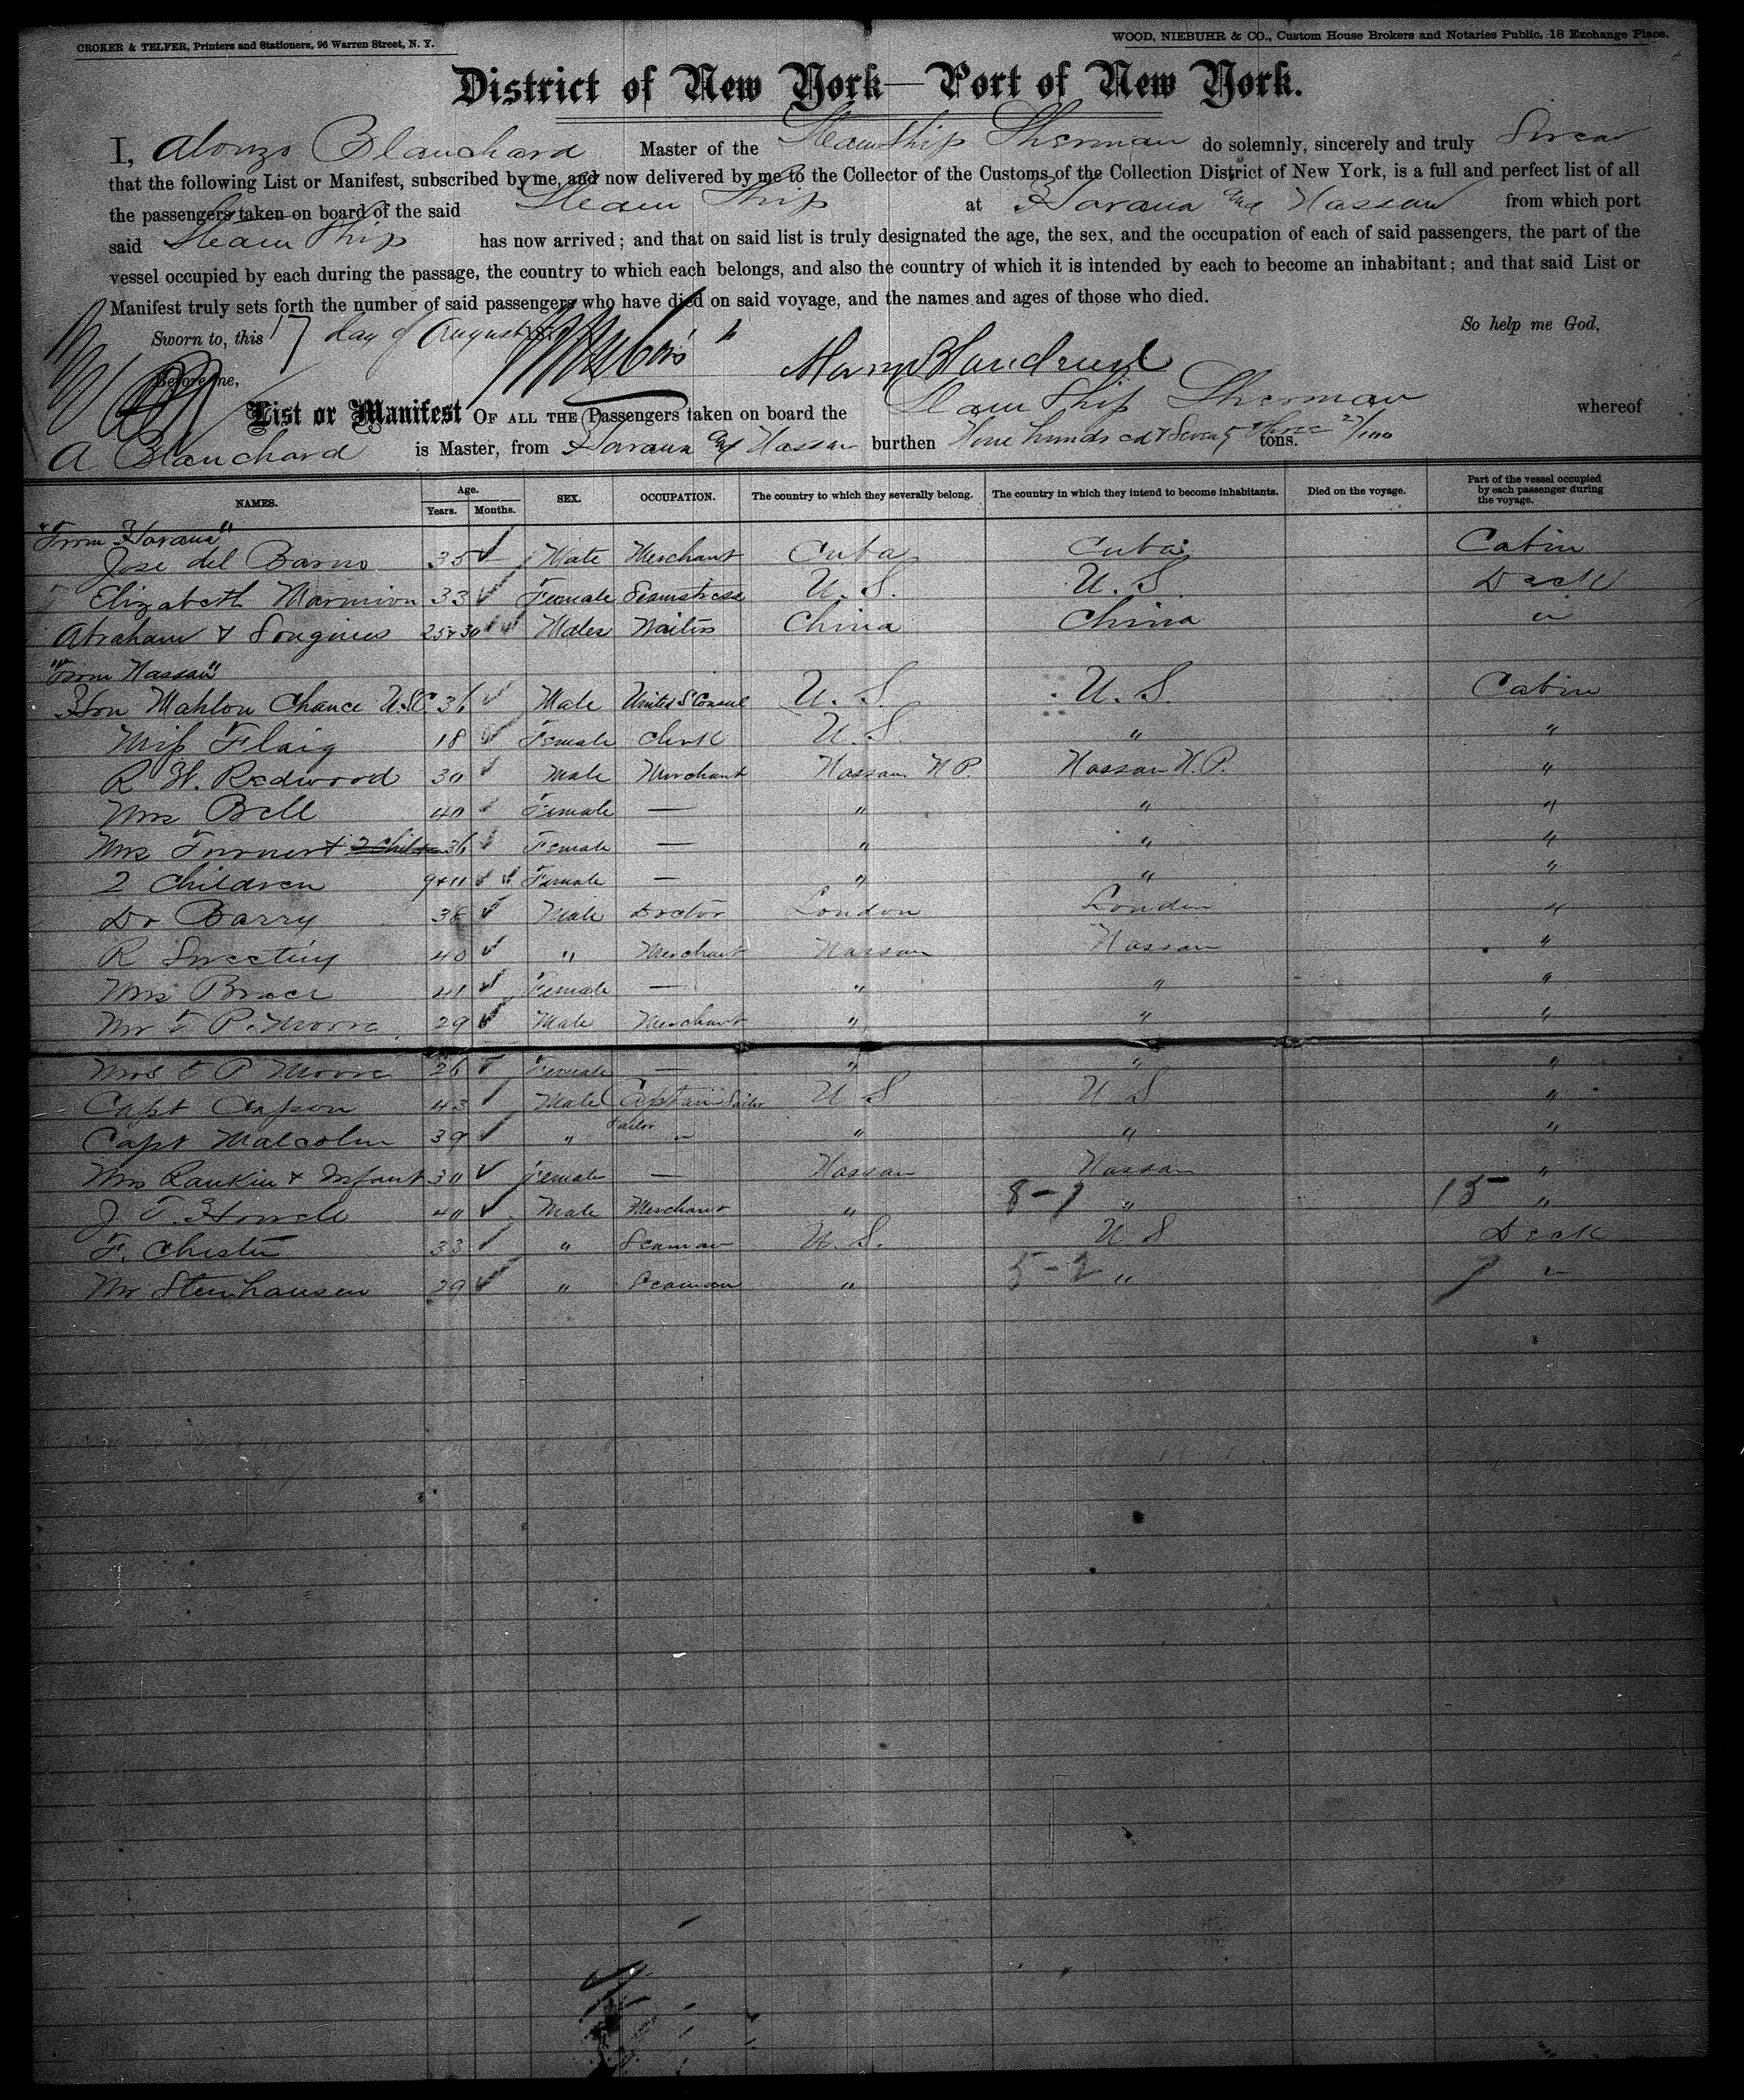 CROKER & TELFER, Printers and Stationers, 96 Warren Street, N. Y.
WOOD, NIEBUHR & CO., Custom House Brokers and Notaries Public, 18 Exchange Place.
District of New York—Port of New York.
I, Alonzo Blanchard Master of the Steam Ship Sherman do solemnly, sincerely and truly Swear
that the following List or Manifest, subscribed by me, and now delivered by me to the Collector of the Customs of the Collection District of New York, is a full and perfect list of all
the passengers taken on board of the said Steam Ship at Havana and Nassau from which port
said Steam Ship has now arrived; and that on said list is truly designated the age, the sex, and the occupation of each of said passengers, the part of the
vessel occupied by each during the passage, the country to which each belongs, and also the country of which it is intended by each to become an inhabitant; and that said List or
Manifest truly sets forth the number of said passengers who have died on said voyage, and the names and ages of those who died.
So help me God,
Sworn to, this 17 day of August 187
Before me,
List or Manifest OF ALL THE Passengers taken on board the Steam Ship Sherman whereof
A Blanchard is Master, from Havana and Nassau burthen Nine hundred & Seventy three 27/100 tons.
NAMES. Age. Years. Months. SEX. OCCUPATION. The country to which they severally belong. The country in which they intend to become inhabitants. Died on the voyage. Part of the vessel occupied by each passenger during the voyage.
"From Havana"
Jose del Barno 35 Male Merchant Cuba Cuba Cabin
Elizabeth Marmion 33 Female Seamstress U. S. U. S. Deck
Abraham & 25 & 30 Males Waiters China China "
"From Nassau"
Hon Mahlon Chance U.S.C. 36 Male United S Consul U. S. U. S. Cabin
Miss Flaig 18 Female Clerk U. S. " "
R W. Redwood 30 Male Merchant Nassau N P. Nassau N. P. "
Mrs Bell 40 Female — " " "
Mrs Turner & 2 Children 36 Female — " " "
2 Children 9 & 11 Female — " " "
Dr Barry 38 Male Doctor London London "
R Sweeting 40 " Merchant Nassau Nassau "
Mrs Brace 41 Female — " " "
Mr T P. Moore 29 Male Merchant " " "
Mrs T P Moore 26 Female — " " "
Capt 43 Male Captain Sailor U S U S "
Capt Malcolm 39 " Sailor " " " "
Mrs Rankin & Infant 30 Female — Nassau Nassau "
J T. Howell 40 Male Merchant " 8-7 " 15 "
F. Chester 33 " Seaman U. S. U S Deck
Mr Steinhausen 29 " Seaman " 5-2 " 7 "